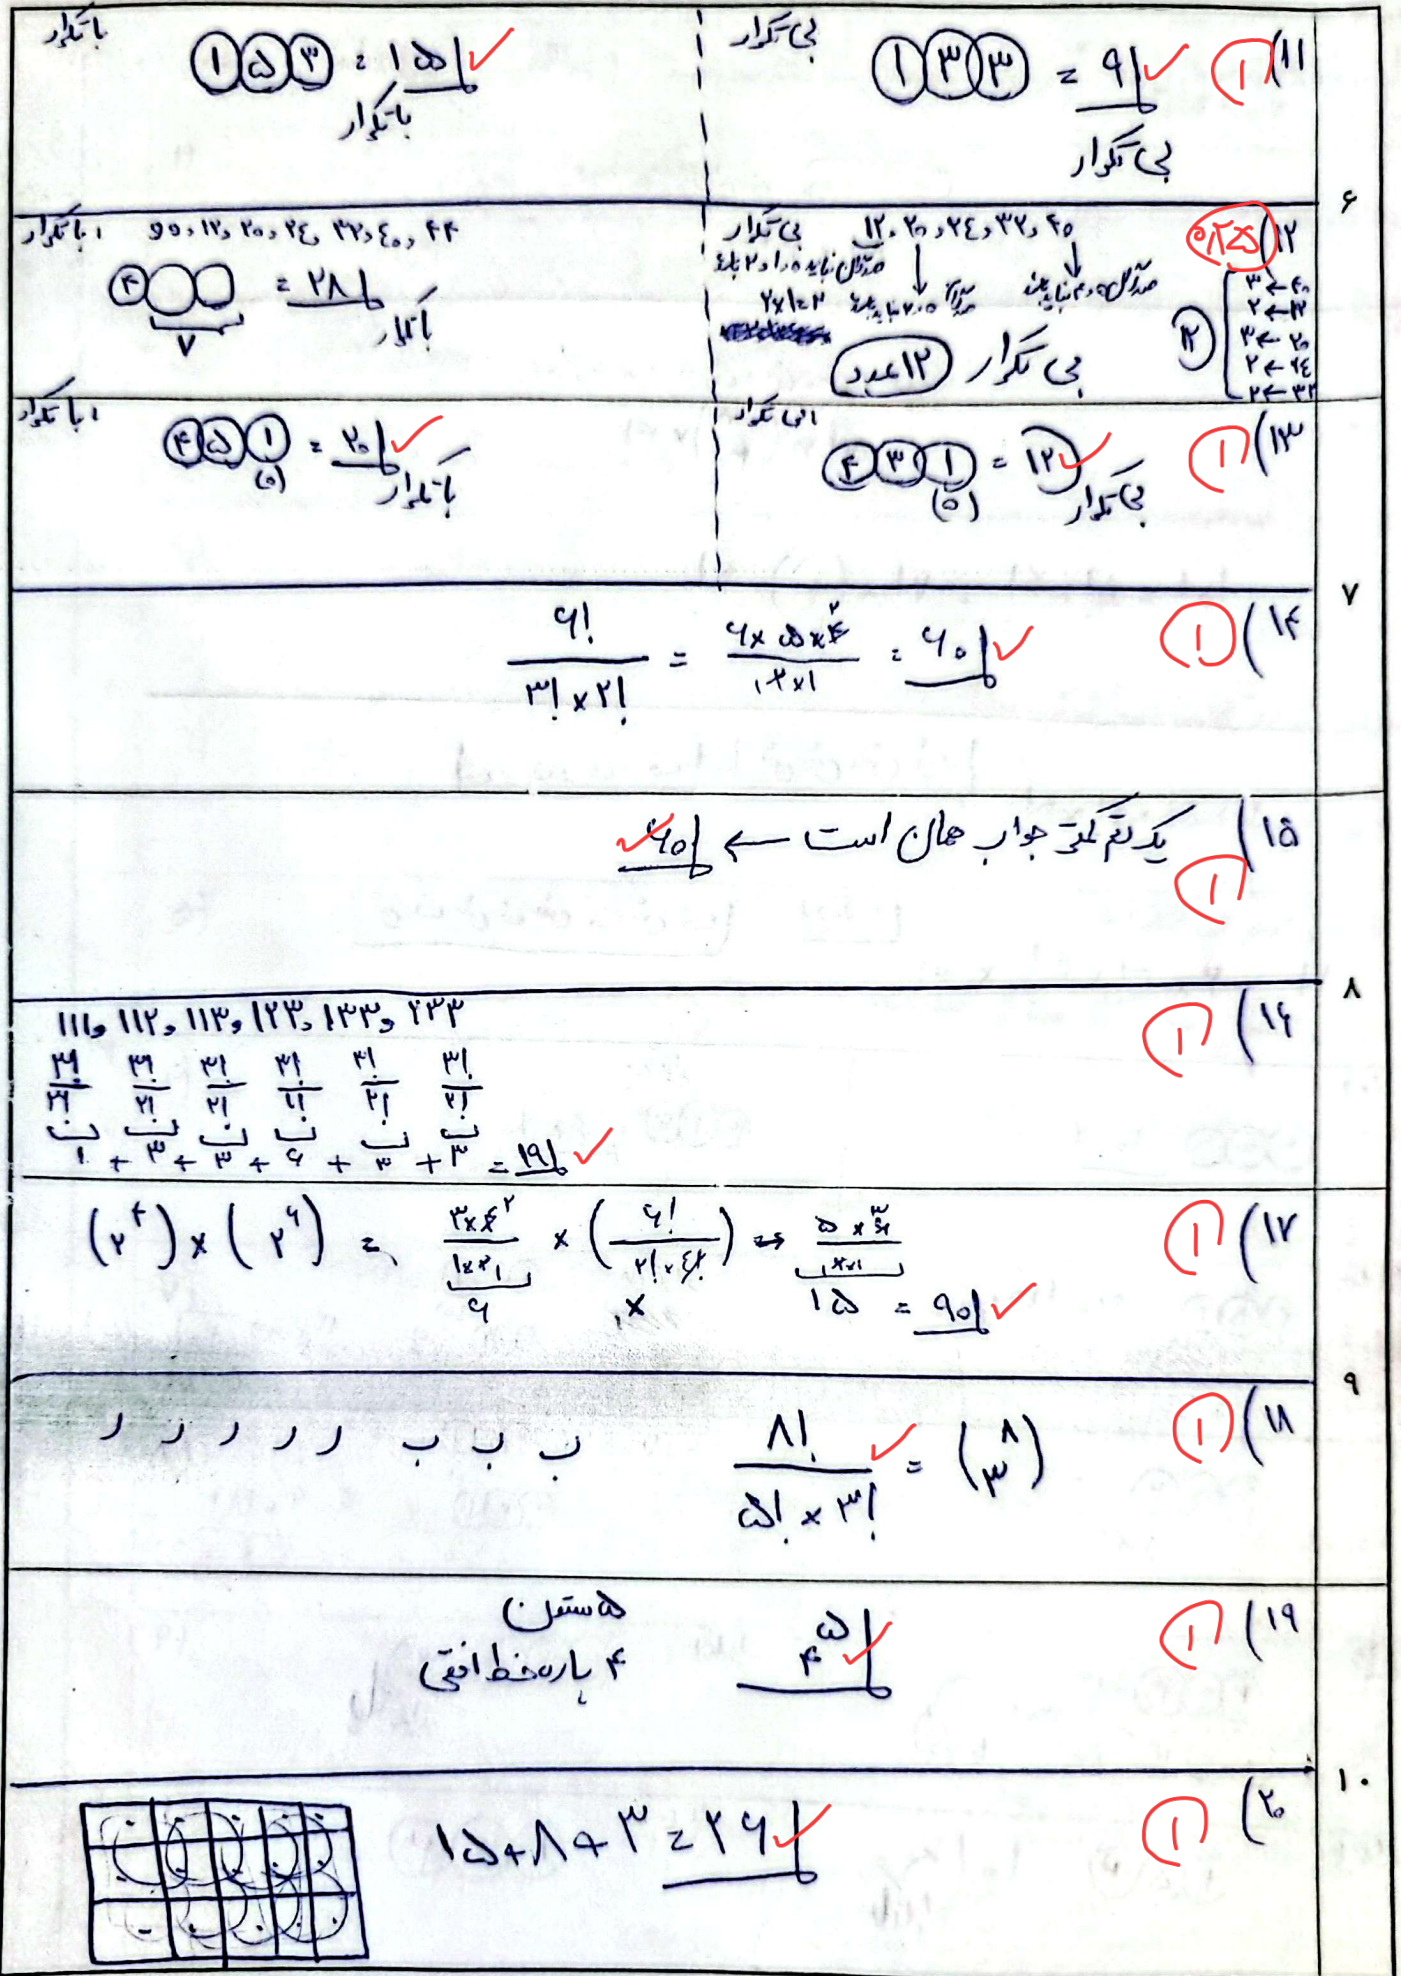 ۱۱) ۱
بی تکرار
۱ ۳ ۳ = ۹
بی تکرار
با تکرار
۱ ۵ ۳ = ۱۵
با تکرار
۶
۱۲) ۰/۲۵
بی تکرار
۱۲، ۲۰، ۲۴، ۳۲، ۴۰
۲×۱=۲
۴۰ → ۳
۱۲ → ۲
۲۰ → ۳
۲۴ → ۲
۳۲ → ۲
۱۲
بی تکرار ۱۲ عدد
با تکرار
۰۰، ۱۲، ۲۰، ۲۴، ۳۲، ۴۰، ۴۴
۴ = ۲۸
۷
با تکرار
۱۳) ۱
بی تکرار
۴ ۳ ۱ = ۱۲
(۰)
بی تکرار
با تکرار
۴ ۵ ۱ = ۲۰
(۰)
با تکرار
۷
۱۴) ۱
۶! / ۳! × ۲! = ۶ × ۵ × ۴ / ۲ × ۱ = ۶۰
۱۵) یک رقم کمتر جواب همان است ← ۶۰
۱
۸
۱۶) ۱
۱۱۱، ۱۱۲، ۱۱۳، ۱۲۳، ۱۳۳، ۲۳۳
۳!/۳! ۳!/۲! ۳!/۲! ۳!/۱! ۳!/۲! ۳!/۲!
۱ + ۳ + ۳ + ۶ + ۳ + ۳ = ۱۹
۱۷) ۱
(۲ ۴) × (۲ ۶) = ۳×۴ / ۱×۲×۱ × (۶! / ۲!×۴!) ⇒ ۵ × ۶ / ۲×۱
۶ × ۱۵ = ۹۰
۹
۱۸) ۱
ر ر ر ر ر ب ب ب
۸! / ۵! × ۳! = (۸ ۳)
۱۹) ۱
۵ ستون
۴ پاره خط افقی
۴^۵
۱۰
۲۰) ۱
۱۵ + ۸ + ۳ = ۲۶